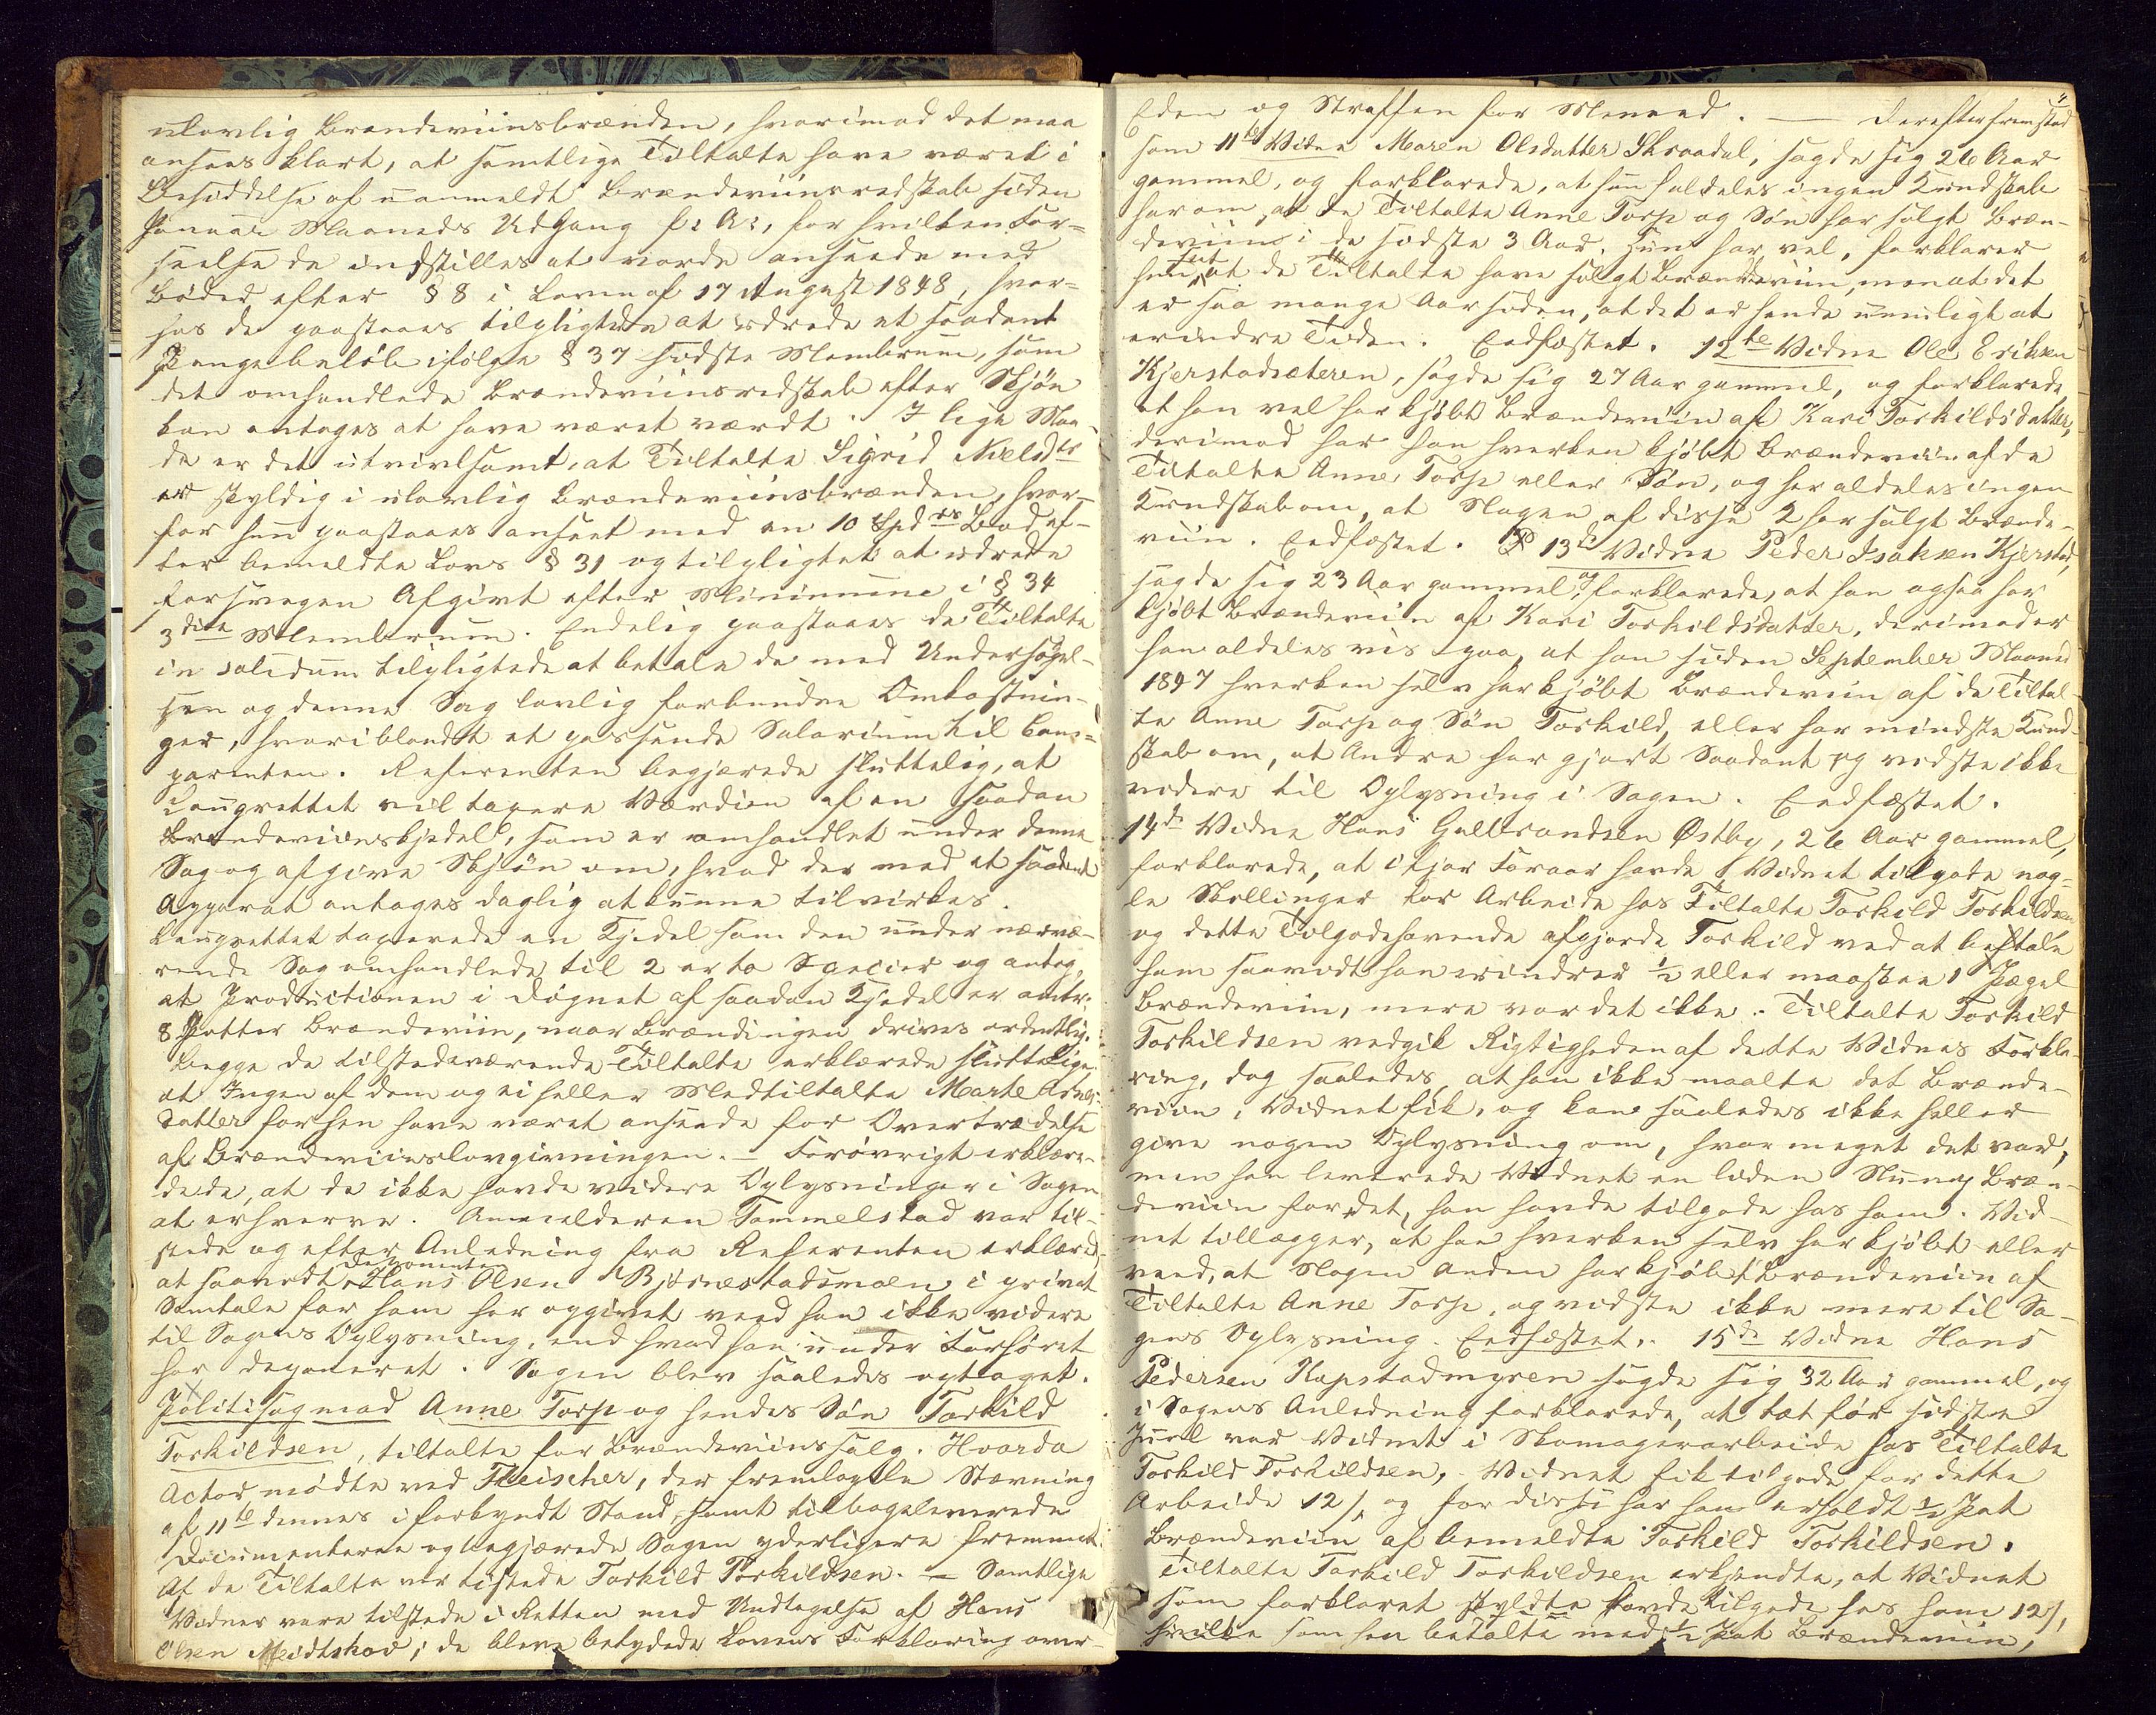 ulovlig Brændeviinsbrænden, hvorimod det maa
ansees klart, at samtlige Tiltalte have været i
Besiddelse af uanmeldt Brændeviinsredskab siden
Januar Maaneds Udgang f: A:, for hvilken For-
seelse de indstilles at vorde anseede med
Bøder efter § 8 i Loven af 17 August 1848, hvor-
hos de paastaaes tilpligtede at udrede et saadant
Pengebeløb ifølge § 37 sidste Membrum, som
det omhandlede Brændeviinsredskab efter Skjøn
kan antages at have været værdt. I lige Maa-
de er det utvivlsomt, at Tiltalte Sigrid Nielsdtr
er skyldig i ulovlig Brændeviinsbrænden, hvor-
for hun paastaaes anseet med en 10 Spdrs Bod ef-
ter bemeldte Lovs § 31 og tilpligtet at udrede
forsvegen Afgivt efter Minimume i § 34
3die Membrum. Endelig paastaaes de Tiltalte
in solidum tilpligtede at betale de med Undersøgel-
sen og denne Sag lovlig forbundne Omkostnin-
ger, hvoriblandt et passende Salarium til Com-
parenten. Referenten begjærede sluttelig, at
Laugrettet vil taxere Værdien af en saadan
Brændeviinskjedel, som er omhandlet under denne
Sag og afgive Skjøn om, hvad der med et saadant
Apparat antages daglig at kunne tilvirkes.
Laugrettet taxerede en Kjedel som den under nærvæ-
rende Sag omhandlede til 2 er to Specier og antog,
at Productionen i Døgnet af saadan Kjedel er
8 Potter Brændeviin, naar Brændingen drives ordentlig.
Begge de tilstedeværende Tiltalte erklærede sluttelig
at Ingen af dem og ei heller Medtiltalte Marte Arnes-
datter forhen have været anseede for Overtrædelse
af Brændeviinslovgivningen. — Forøvrigt erklære-
de de, at de ikke havde videre Oplysninger i Sagen
at erhverve. Anmelderen Tommelstad var til-
stede og efter Anledning fra Referenten erklæred,
at saavidt Deponenten Hans Olsen Bjørnestadsmoen i privat
Samtale for ham har opgivet veed han ikke videre
til Sagens Oplysning, end hvad han under Forhøret
har deponeret. Sagen blev saaledes optaget.
Politisag mod Anne Torp og hendes Søn Torkild
Torkildsen, tiltalte for Brændeviinssalg. Hvorda
Actor mødte ved Fleischer, der fremlagde Stævning
af 11te dennes i forkyndt Stand, samt tilbageleverede
Documenterne og begjærede Sagen yderligere fremmet.
Af de Tiltalte var tilstede Torkild Torkildsen. — Samtlige
Vidner vare tilstede i Retten med Undtagelse af Hans
Olsen Meidtskov; de bleve betydede Lovens Forklaring over
Eden og Straffen for Meneed. — Derefter fremstod
som 11te Vidne Maren Olsdatter Skraadal, sagde sig 26 Aar
gammel, og forklarede, at hun saldeles ingen Kundskab
har om, at de Tiltalte Anne Torp og Søn har solgt Bræn-
deviin i de sidste 3 Aar. Hun har vel, forklarer
hun, at de Tiltalte have solgt Brændeviin, men at det
er saa mange Aar siden, at det er hende umuligt at
erindre Tiden. Eedfæstet. 12te Vidne Ole Eriksen
Kjerstadsæteren, sagde sig 27 Aar gammel, og forklarede
at han vel har kjøbt Brændeviin af Kari Torkildsdatter,
derimod har han hverken kjøbt Brændeviin af de
Tiltalte Anne Torp eller Søn, og har aldeles ingen
Kundskab om, at Nogen af disse 2 har solgt Brænde-
viin. Eedfæstet. 13de Vidne Peder Isaksen Kjerstad,
sagde sig 23 Aar gammel og forklarede, at han ogsaa har
kjøbt Brændeviin af Kari Torkildsdatter, derimod er
han aldeles vis paa, at han siden September Maaned
1847 hverken selv har kjøbt Brændeviin af de Tiltal-
te Anne Torp og Søn Torkild, eller har mindste Kund-
skab om, at Andre har gjort Saadant og vidste ikke
videre til Oplysning i Sagen. Eedfæstet.
14de Vidne Hans Gulbrandsen Østby, 26 Aar gammel,
forklarede, at ifjor Foraar havde Vidnet tilgode nog-
le Skillinger for Arbeide hos Tiltalte Torkild Torkildsen
og dette Tilgodehavende afgjorde Torkild ved at betale
ham saavidt han erindrer ½ eller maaskee 1 Pægel
Brændeviin, mere var det ikke. Tiltalte Torkild
Torkildsen vedgik Rigtigheden af dette Vidnes Forkla-
ring, dog saaledes, at han ikke maalte det Brænde-
viin, Vidnet fik, og kan saaledes ikke heller
give nogen Oplysning om, hvor meget det var,
men han leverede Vidnet en liden Slump Bræn-
deviin for det, han havde tilgode hos ham. Vid-
net tillægger, at han hverken selv har kjøbt eller
veed, at Nogen Anden har kjøbt Brændeviin af
Tiltalte Anne Torp, og vidste ikke mere til Sa-
gens Oplysning. Eedfæstet. 15de Vidne Hans
Pedersen Kopstadmyren sagde sig 32 Aar gammel, og
i Sagens Anledning forklarede, at tæt før sidste
Juul var Vidnet i Skomagerarbeide hos Tiltalte
Torkild Torkildsen, Vidnet fik tilgode for dette
Arbeide 12 s, og for disse har han erholdt ½ Pot
Brændeviin af bemeldte Torkild Torkildsen.
Tiltalte Torkild Torkildsen erkjendte, at Vidnet
som forklaret havde tilgode hos ham 12 s,
hvilke som han betalte med ½ Pot Brændeviin,